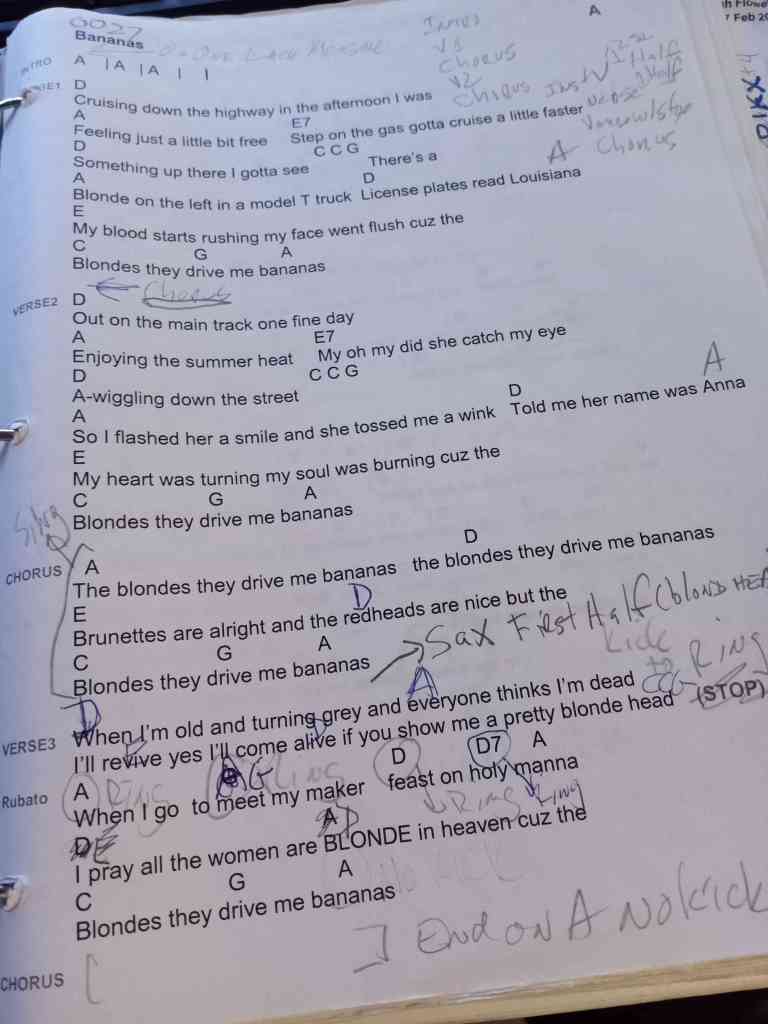 0027
Bananas
INTRO A | A | A | |
A
INTRO
V1
CHORUS
V2
CHORUS INST
1st Half
Verse
Chorus
A
D
Cruising down the highway in the afternoon I was
A E7
Feeling just a little bit free Step on the gas gotta cruise a little faster
D C C G
Something up there I gotta see There's a
A D
Blonde on the left in a model T truck License plates read Louisiana
E
My blood starts rushing my face went flush cuz the
C G A
Blondes they drive me bananas
Chorus
VERSE2 D
Out on the main track one fine day
A E7
Enjoying the summer heat My oh my did she catch my eye
D C C G
A-wiggling down the street
A D A
So I flashed her a smile and she tossed me a wink Told me her name was Anna
E
My heart was turning my soul was burning cuz the
C G A
Blondes they drive me bananas
Sing
CHORUS A D
The blondes they drive me bananas the blondes they drive me bananas
E D
Brunettes are alright and the redheads are nice but the
C G A
Blondes they drive me bananas
Sax First Half (blond HEA
kick
to
CCG RING
D A
VERSE3 When I'm old and turning grey and everyone thinks I'm dead
I'll revive yes I'll come alive if you show me a pretty blonde head (STOP)
Rubato A RING G RING D D7 A
When I go to meet my maker feast on holy manna
RING RING
E D
I pray all the women are BLONDE in heaven cuz the
C G A
Blondes they drive me bananas
] End on A No kick
CHORUS [